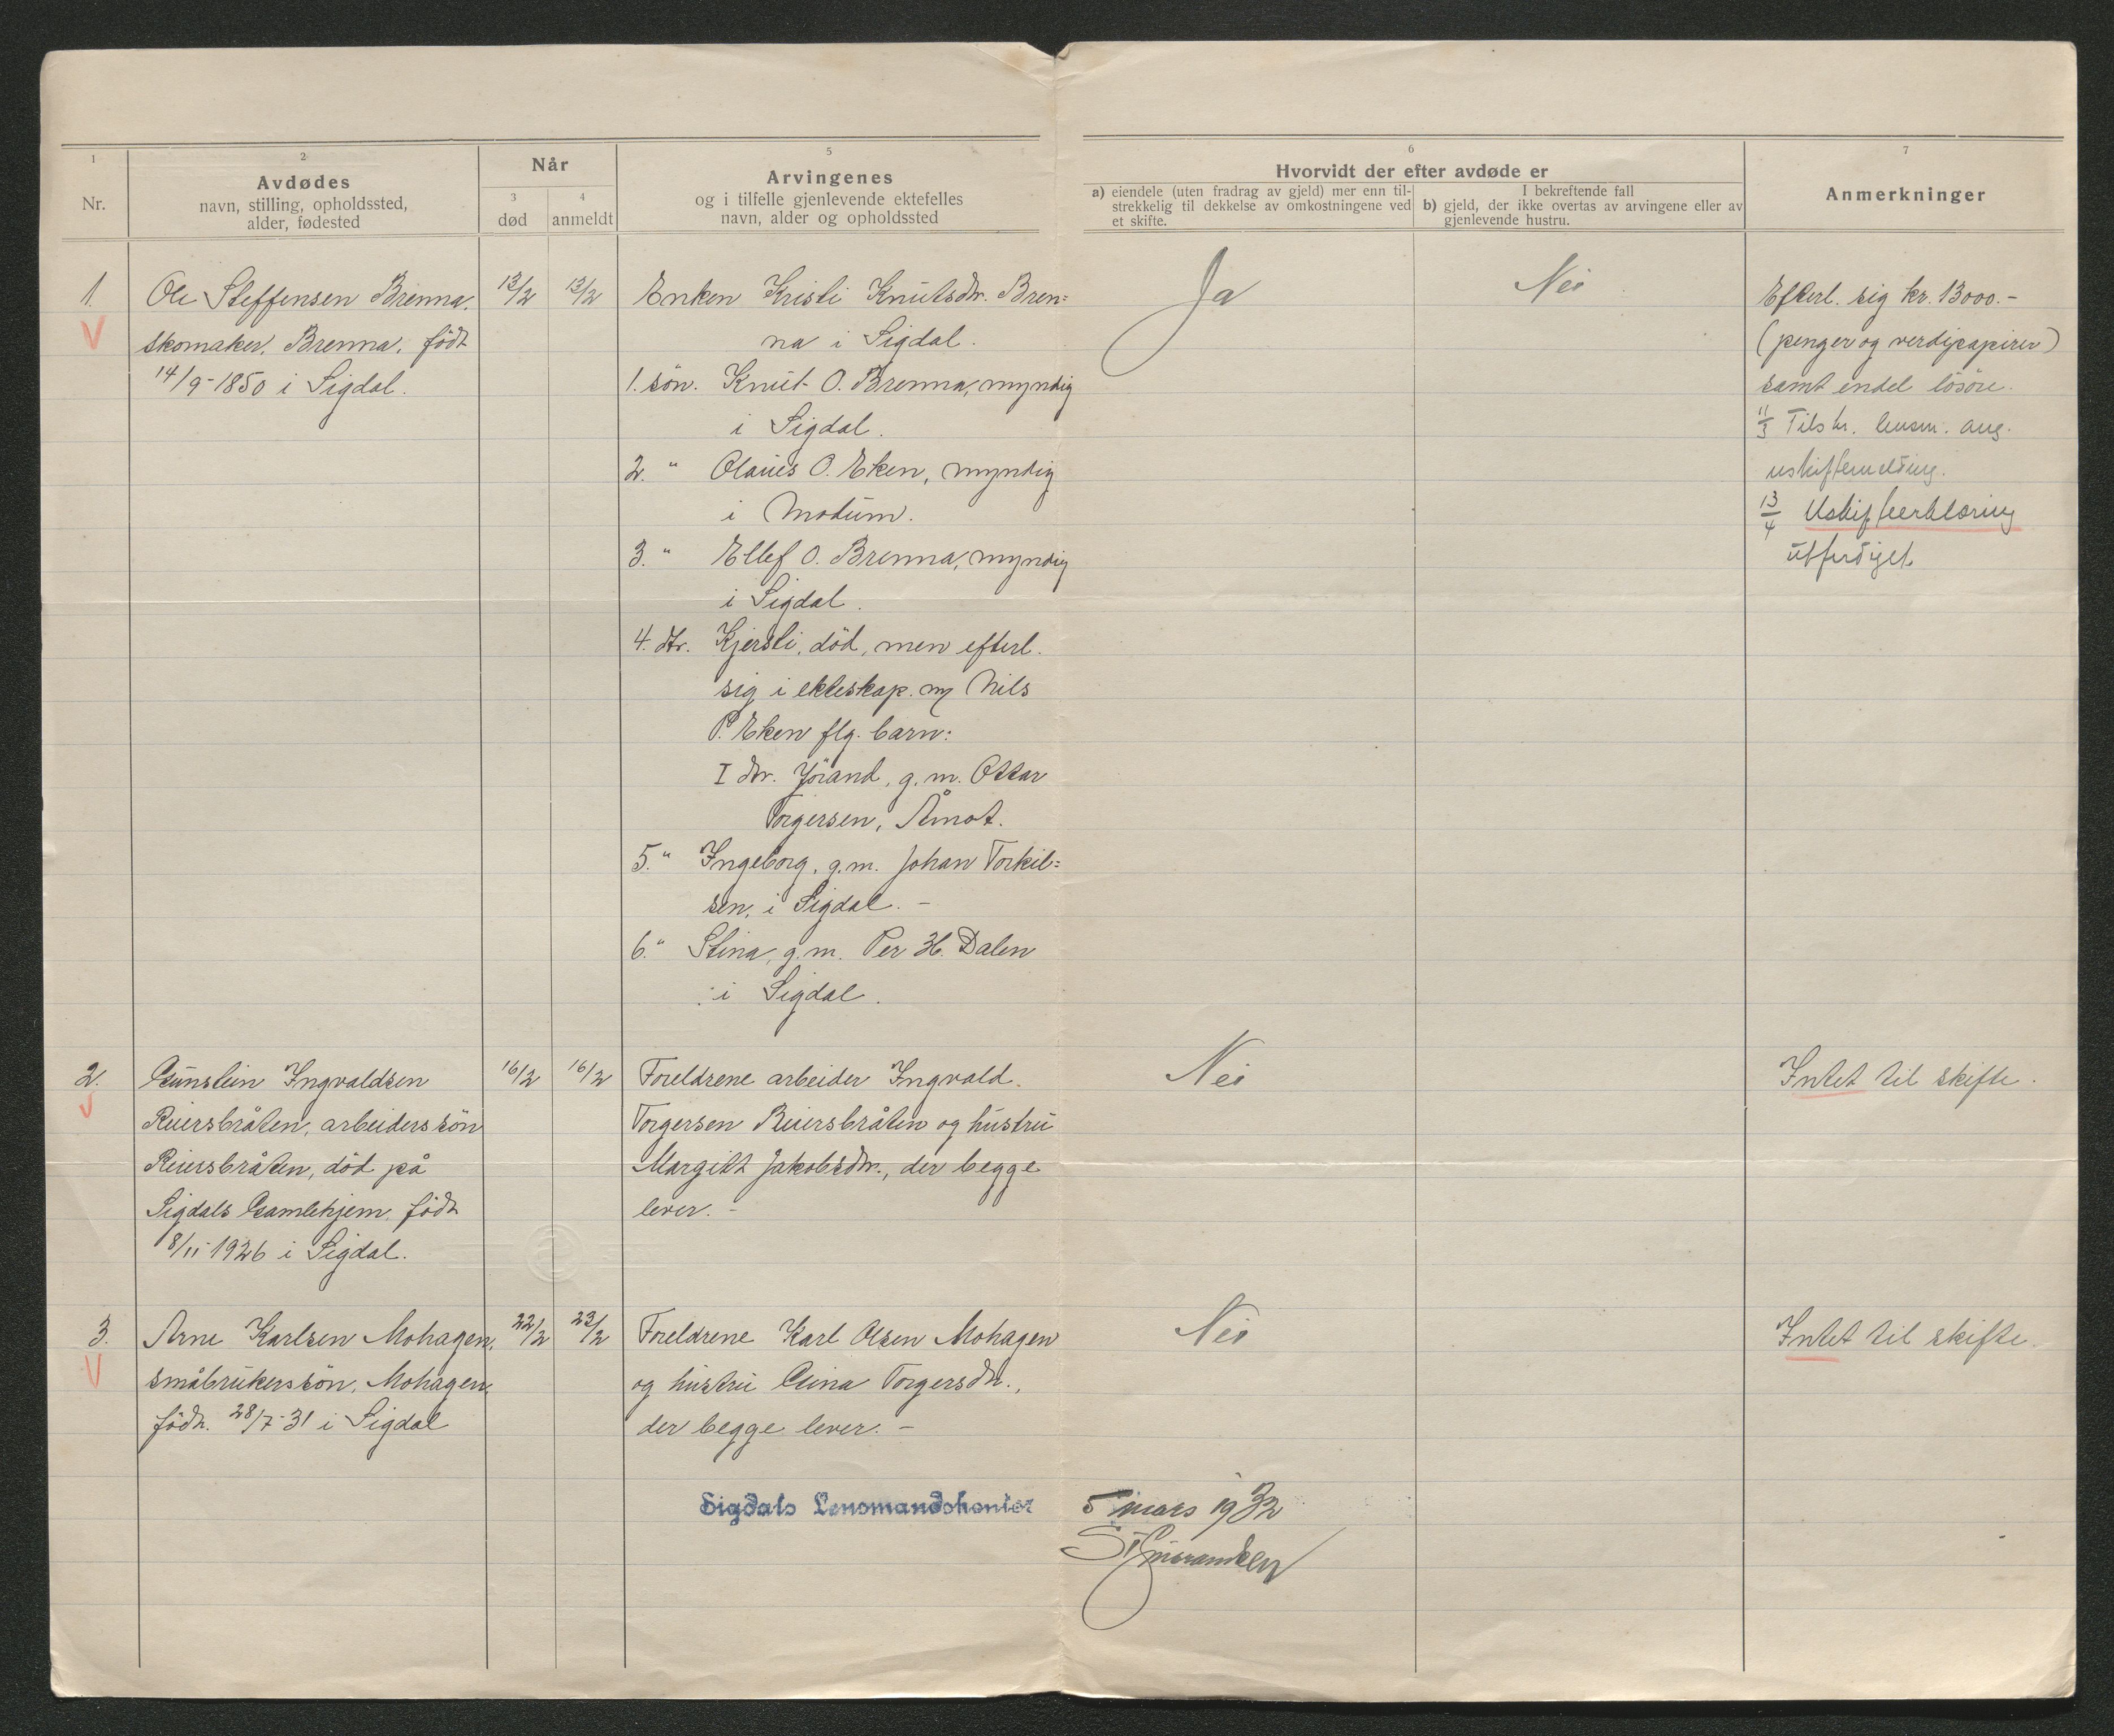 1
Nr.
2
Avdødes
navn, stilling, opholdssted,
alder, fødested
Når
3
død
4
anmeldt
5
Arvingenes
og i tilfelle gjenlevende ektefelles
navn, alder og opholdssted
6
Hvorvidt der efter avdøde er
a) eiendele (uten fradrag av gjeld) mer enn til-
strekkelig til dekkelse av omkostningene ved
et skifte.
I bekreftende fall
b) gjeld, der ikke overtas av arvingene eller av
gjenlevende hustru.
7
Anmerkninger
1.
Ole Steffensen Brenna,
skomaker, Brenna, födt
14/9-1850 i Sigdal.
13/2
13/2
Enken Kristi Knutsdr. Bren=
na i Sigdal.
1. sön. Knut O. Brenna, myndig
i Sigdal.
2. " Olaus O. Eken, myndig
i Modum.
3. " Ellef O. Brenna, myndig
i Sigdal.
4. dtr. Kjersti, död, men efterl.
sig i ekteskap. m/ Nils
P. Eken flg. barn:
I dtr. Jörand, g. m. Ottar
Torgersen, Åmot.
5. " Ingeborg, g.m. Johan Torkil=
sen, i Sigdal. -
6. " Stina, g.m. Per H. Dalen
i Sigdal.
Ja
Nei
Efterl. sig kr. 13000.-
(penger og verdipapirer)
samt endel lösöre.
11/3 Tilskr. lensm. ang.
uskiftemelding.
13/4 Uskifteerklæring
utferdiget
2.
Gunstein Ingvaldsen
Reiersbråten, arbeiderssön
Reiersbråten, död på
Sigdals Gamlehjem, födt
8/11-1926 i Sigdal.
16/2
16/2
Foreldrene arbeider Ingvald
Torgersen Reiersbråten og hustru
Margitt Jakobsdtr., der begge
lever. -
Nei
Intet til skifte.
3.
Arne Karlsen Mohagen,
småbrukerssön, Mohagen,
födt. 28/7-31 i Sigdal
22/2
23/2
Foreldrene Karl Olsen Mohagen
og hustru Gina Torgersdtr.,
der begge lever. -
Nei
Intet til skifte.
Sigdals Lensmandskontor
5 mars 1932